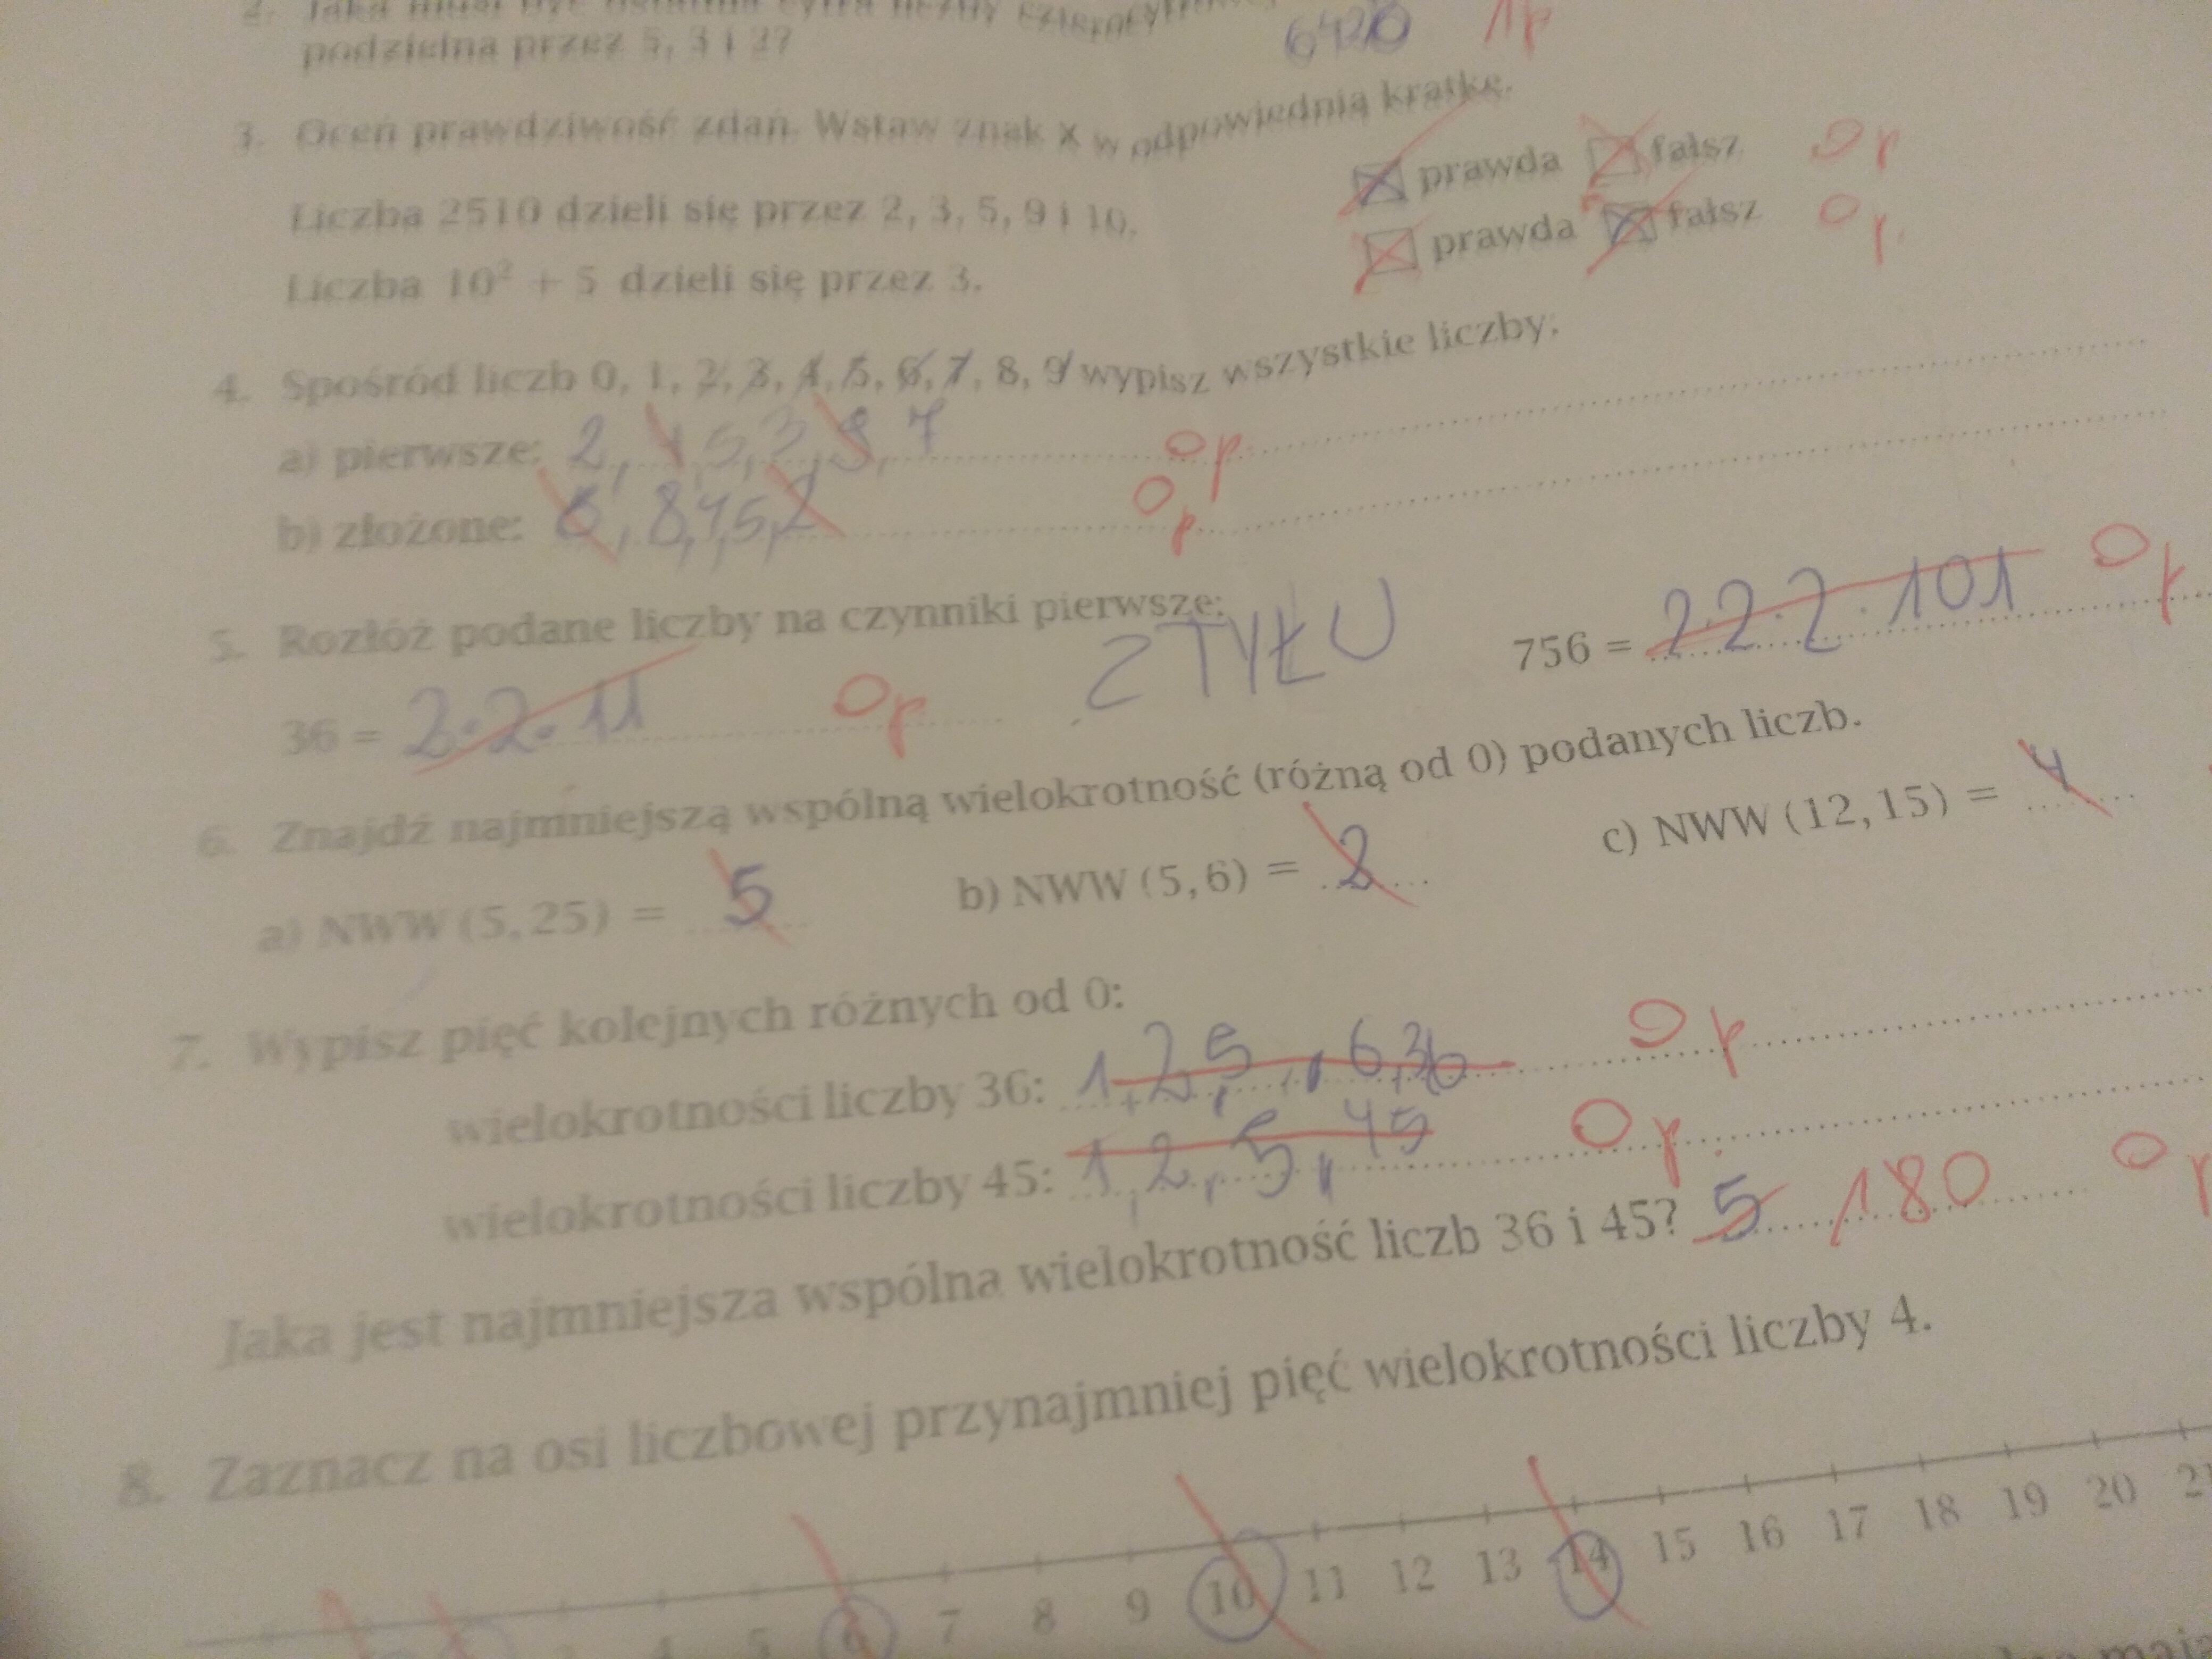 2. Jaka musi być ostatnia cyfra liczby czterocyfrowej
podzielna przez 5, 3 i 2? 6420 1p
3. Oceń prawdziwość zdań. Wstaw znak x w odpowiednią kratkę.
Liczba 2510 dzieli się przez 2, 3, 5, 9 i 10. prawda fałsz 0p
Liczba 10² + 5 dzieli się przez 3. prawda fałsz 0p
4. Spośród liczb 0, 1, 2, 3, 4, 5, 6, 7, 8, 9 wypisz wszystkie liczby:
a) pierwsze: 2, 4, 5, 3, 9, 7 0p
b) złożone: 6, 8, 4, 5, 2 0p
5. Rozłóż podane liczby na czynniki pierwsze:
36 = 2·2·11 0p Z TYŁU 756 = 2·2·2·101 0p
6. Znajdź najmniejszą wspólną wielokrotność (różną od 0) podanych liczb.
a) NWW (5, 25) = 5 b) NWW (5, 6) = 2 c) NWW (12, 15) = 4
7. Wypisz pięć kolejnych różnych od 0:
wielokrotności liczby 36: 1, 2, 5, , 6, 36 0p
wielokrotności liczby 45: 1, 2, 5, 45 0p
Jaka jest najmniejsza wspólna wielokrotność liczb 36 i 45? 5 180 0p
8. Zaznacz na osi liczbowej przynajmniej pięć wielokrotności liczby 4.
4 5 6 7 8 9 10 11 12 13 14 15 16 17 18 19 20 21